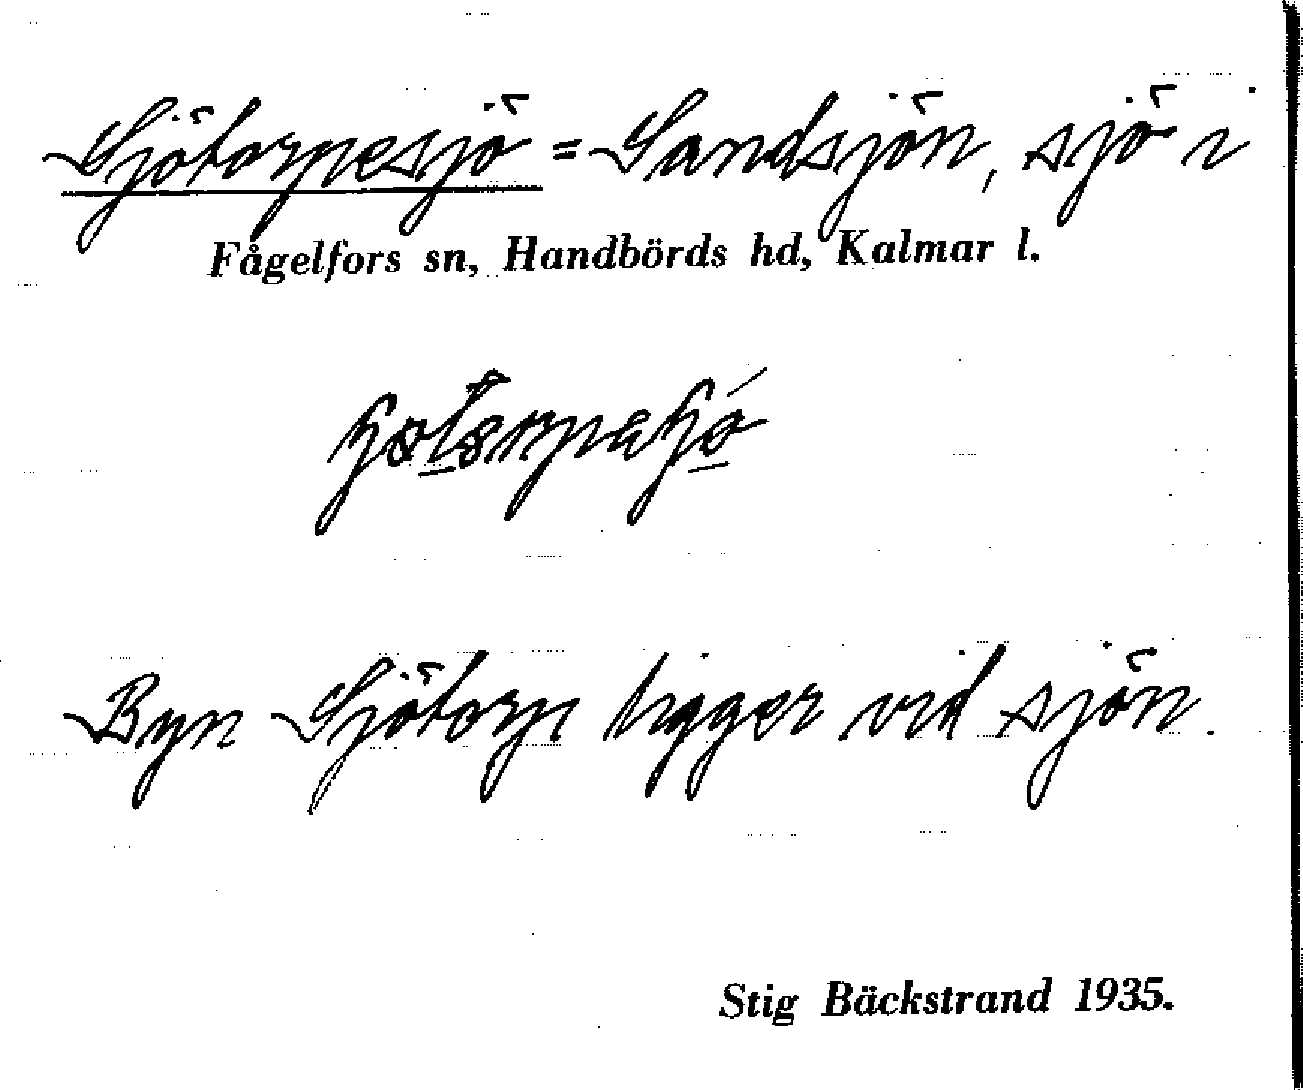 Sjötorpesjö = Sandsjön, sjö i
Fågelfors sn, Handbörds hd, Kalmar l.
Byn Sjötorp ligger vid sjön.
Stig Bäckstrand 1935.